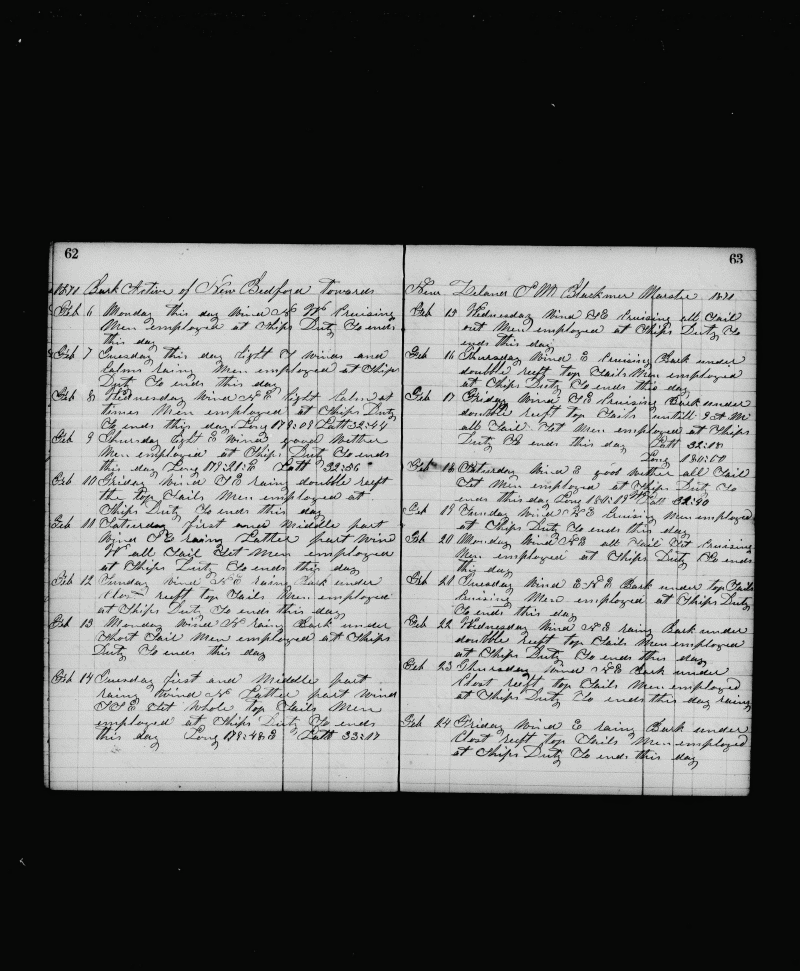 62
1871 Bark Active of New Bedford towards
Feb 6 Monday this day Wind N W Cruising
Men employed at Ships Duty So ends
this day
Feb 7 Tuesday this day light S winds and
Calms raing Men employed at Ships
Duty So ends this day
Feb 8 Wednesday Wind N E light Calm at
times Men employed at Ships Duty
So ends this day Long 178:09 Latt 32:44
Feb 9 Thursday light E Wind good Wether
Men employed at Ships Duty So ends
this day Long 179:21 E Latt 32:56
Feb 10 Friday Wind S E raing double reeft
the top Sails Men employed at
Ships Duty So ends this day
Feb 11 Saturday first and Middle part
Wind S E raing Latter part Wind
W all Sail Set Men employed
at Ships Duty So ends this day
Feb 12 Sunday wind N E raing Bark under
Close reeft top Sails Men employed
at Ships Duty So ends this day
Feb 13 Monday Wind N raing Bark under
Short Sail Men employed at Ships
Duty So ends this day
Feb 14 Tuesday first and Middle part
raing Wind N Latter part Wind
S S E Set Whole top Sails Men
employed at Ships Duty So ends
this day Long 178:48 E Latt 33:17
63
New Zeland S M Blackmer Master 1871
Feb 15 Wednesday Wind S E Cruising all Sail
out Men employed at Ships Duty So
ends this day
Feb 16 Thursday Wind E Cruising Bark under
double reeft top Sails Men employed
at Ships Duty So ends this day
Feb 17 Friday Wind S E Cruising Bark under
double reeft top Sails untill 9 A M
all Sail Set Men employed at Ships
Duty So ends this day Latt 32:18
Long 180:50
Feb 18 Saturday Wind E good wether all Sail
Set Men employed at Ships Duty So
ends this day Long 180:19 W Latt 32:40
Feb 19 Sunday Wind N E Cruising Men employed
at Ships Duty So ends this day
Feb 20 Monday Wind N E all Sail Set Cruising
Men employed at Ships Duty So ends
this day
Feb 21 Tuesday Wind E N E Bark under top Sails
Cruising Men employed at Ships Duty
So ends this day
Feb 22 Wednesday Wind N E raing Bark under
doubble reeft top Sails Men employed
at Ships Duty So ends this day
Feb 23 Thursday Wind N E Bark under
Clost reeft top Sails Men employed
at Ships Duty So ends this day raing
Feb 24 Friday Wind E raing Bark under
Clost reeft top Sails Men employed
at Ships Duty So ends this day